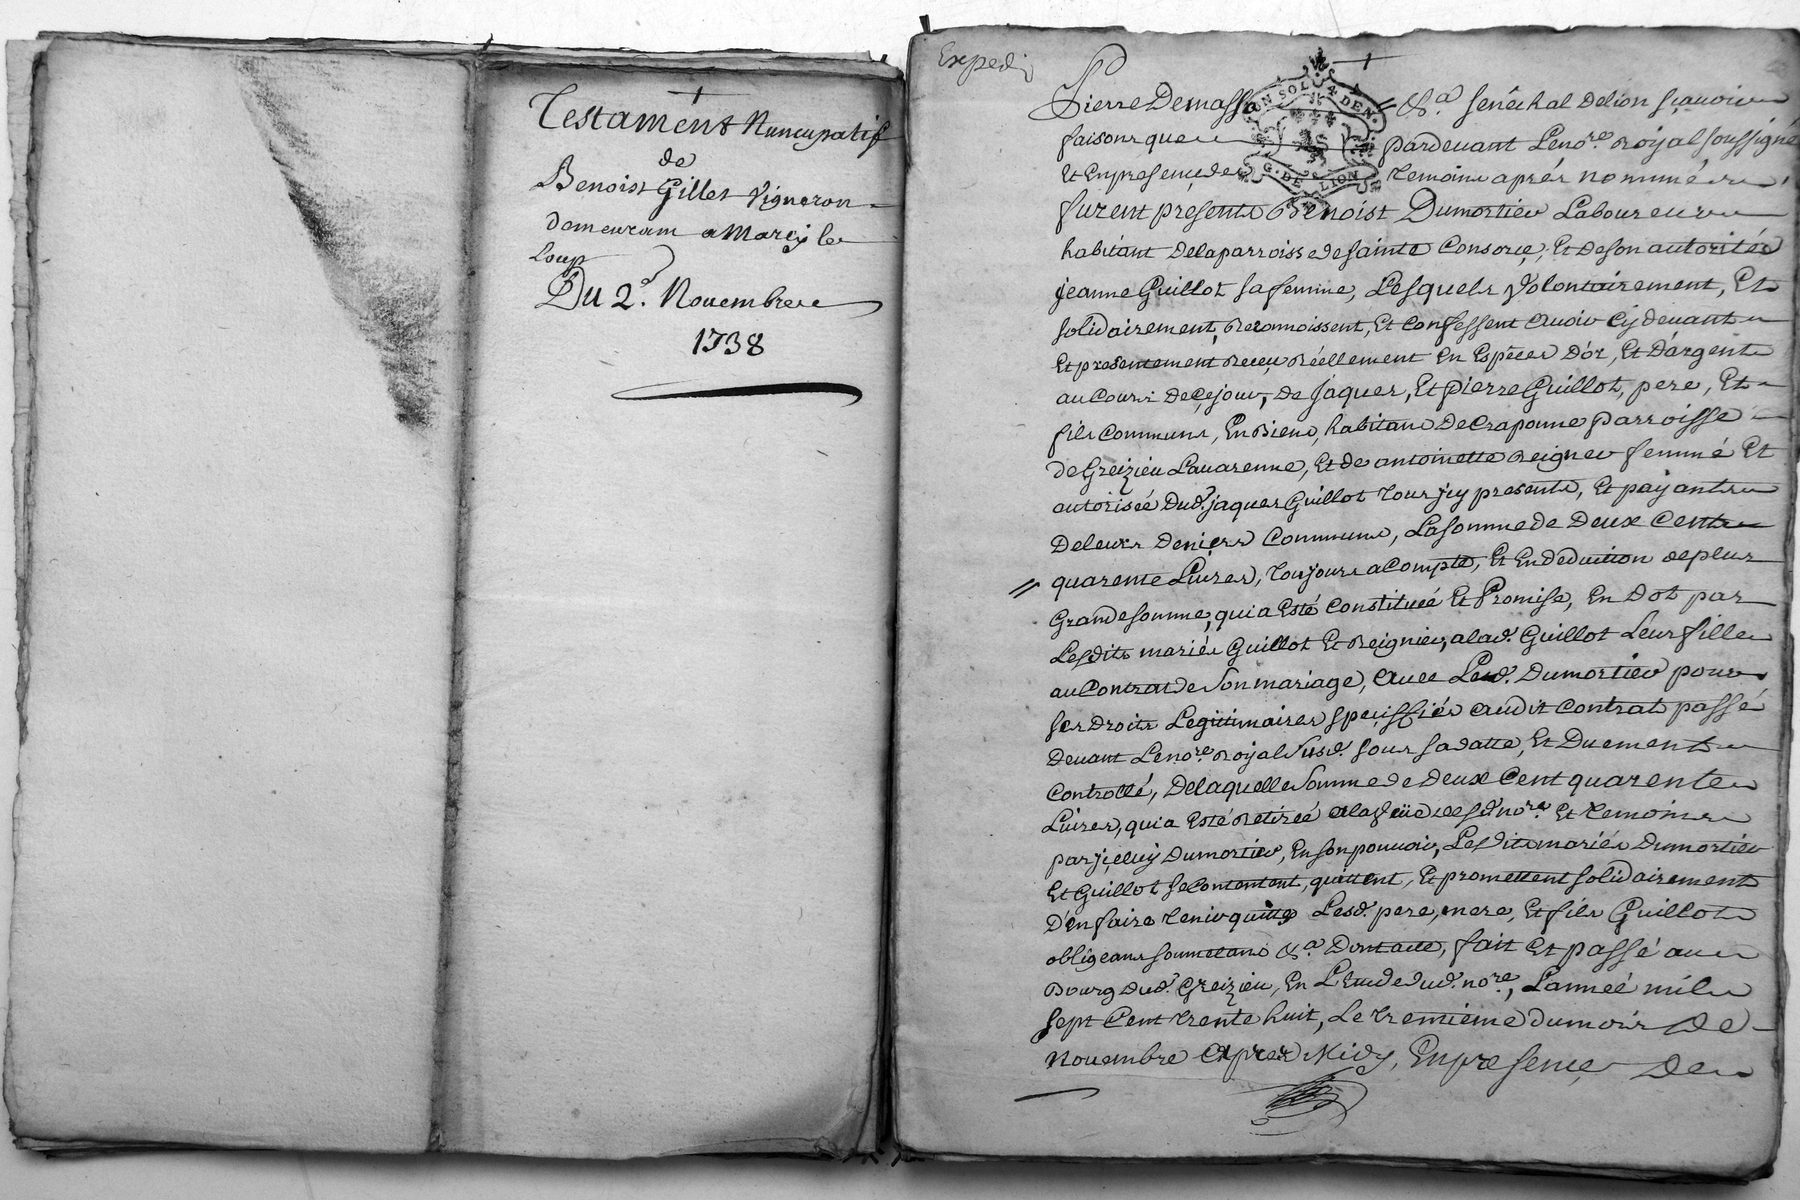 Testament Nuncupatif
de
Benoist Gillet Vigneron
demeurant a Marcy le
Loup
Du 2e. Novembre
1738
Expedié
Pierre Demasso &.a senéchal de Lion sçavoir
GON SOL 4 DEN.
G. DE LION
faisons que pardevant Le no.re Royal soussigné
Et En presence des temoins aprés nommés
furent presents Benoist Dumortier Laboureur
habitant de la parroisse de sainte Consorce, Et de son autorité
jeanne Guillot sa femme, Lesquels Volontairement, Et
solidairement, Reconnoissent, Et Confessent avoir cy devant
Et presentement Receu Réellement En Espèces D'or, Et D'argent
au Cours de ce jour, de jaques, Et pierre Guillot, pere, Et
fils Communs, En Biens, habitans de Craponne parroisse
de Greizieu Lavarenne, Et de antoinette Reignier femme Et
autorisée dud. jaques Guillot tous jcy presents, Et payants
De leurs Deniers Communs, La somme de Deux Cents
quarente Livres, toujours a Compte, Et En deduction de plus
Grande somme, qui a Esté Constituée Et Promise, En Dot par
Lesdits mariés Guillot Et Reignier, a lad. Guillot Leur fille
au Contrat de son mariage, avec Led. Dumortier pour
ses droits Legitimaires speciffiés audit Contrat passé
Devant Le no.re Royal susd. sous sa datte, Et Duement
Controllé, De laquelle somme de Deux Cent quarente
Livres, qui a Esté Retirée a la veüe desd. no.re Et temoins
par jcelluy Dumortier, En son pouvoir, Lesdits mariés Dumortier
Et Guillot se Contentent, quittent, Et promettent solidairement
D'en faire tenir quitte Lesd. pere, mere, Et fils Guillot
obligeans soumetans &.a Dont acte, fait Et passé au
Bourg dud. Greizieu, En L'Etude dud. no.re, L'année mil
sept Cent trente huit, Le trentiéme du mois De
Novembre apres Midy, En presence De